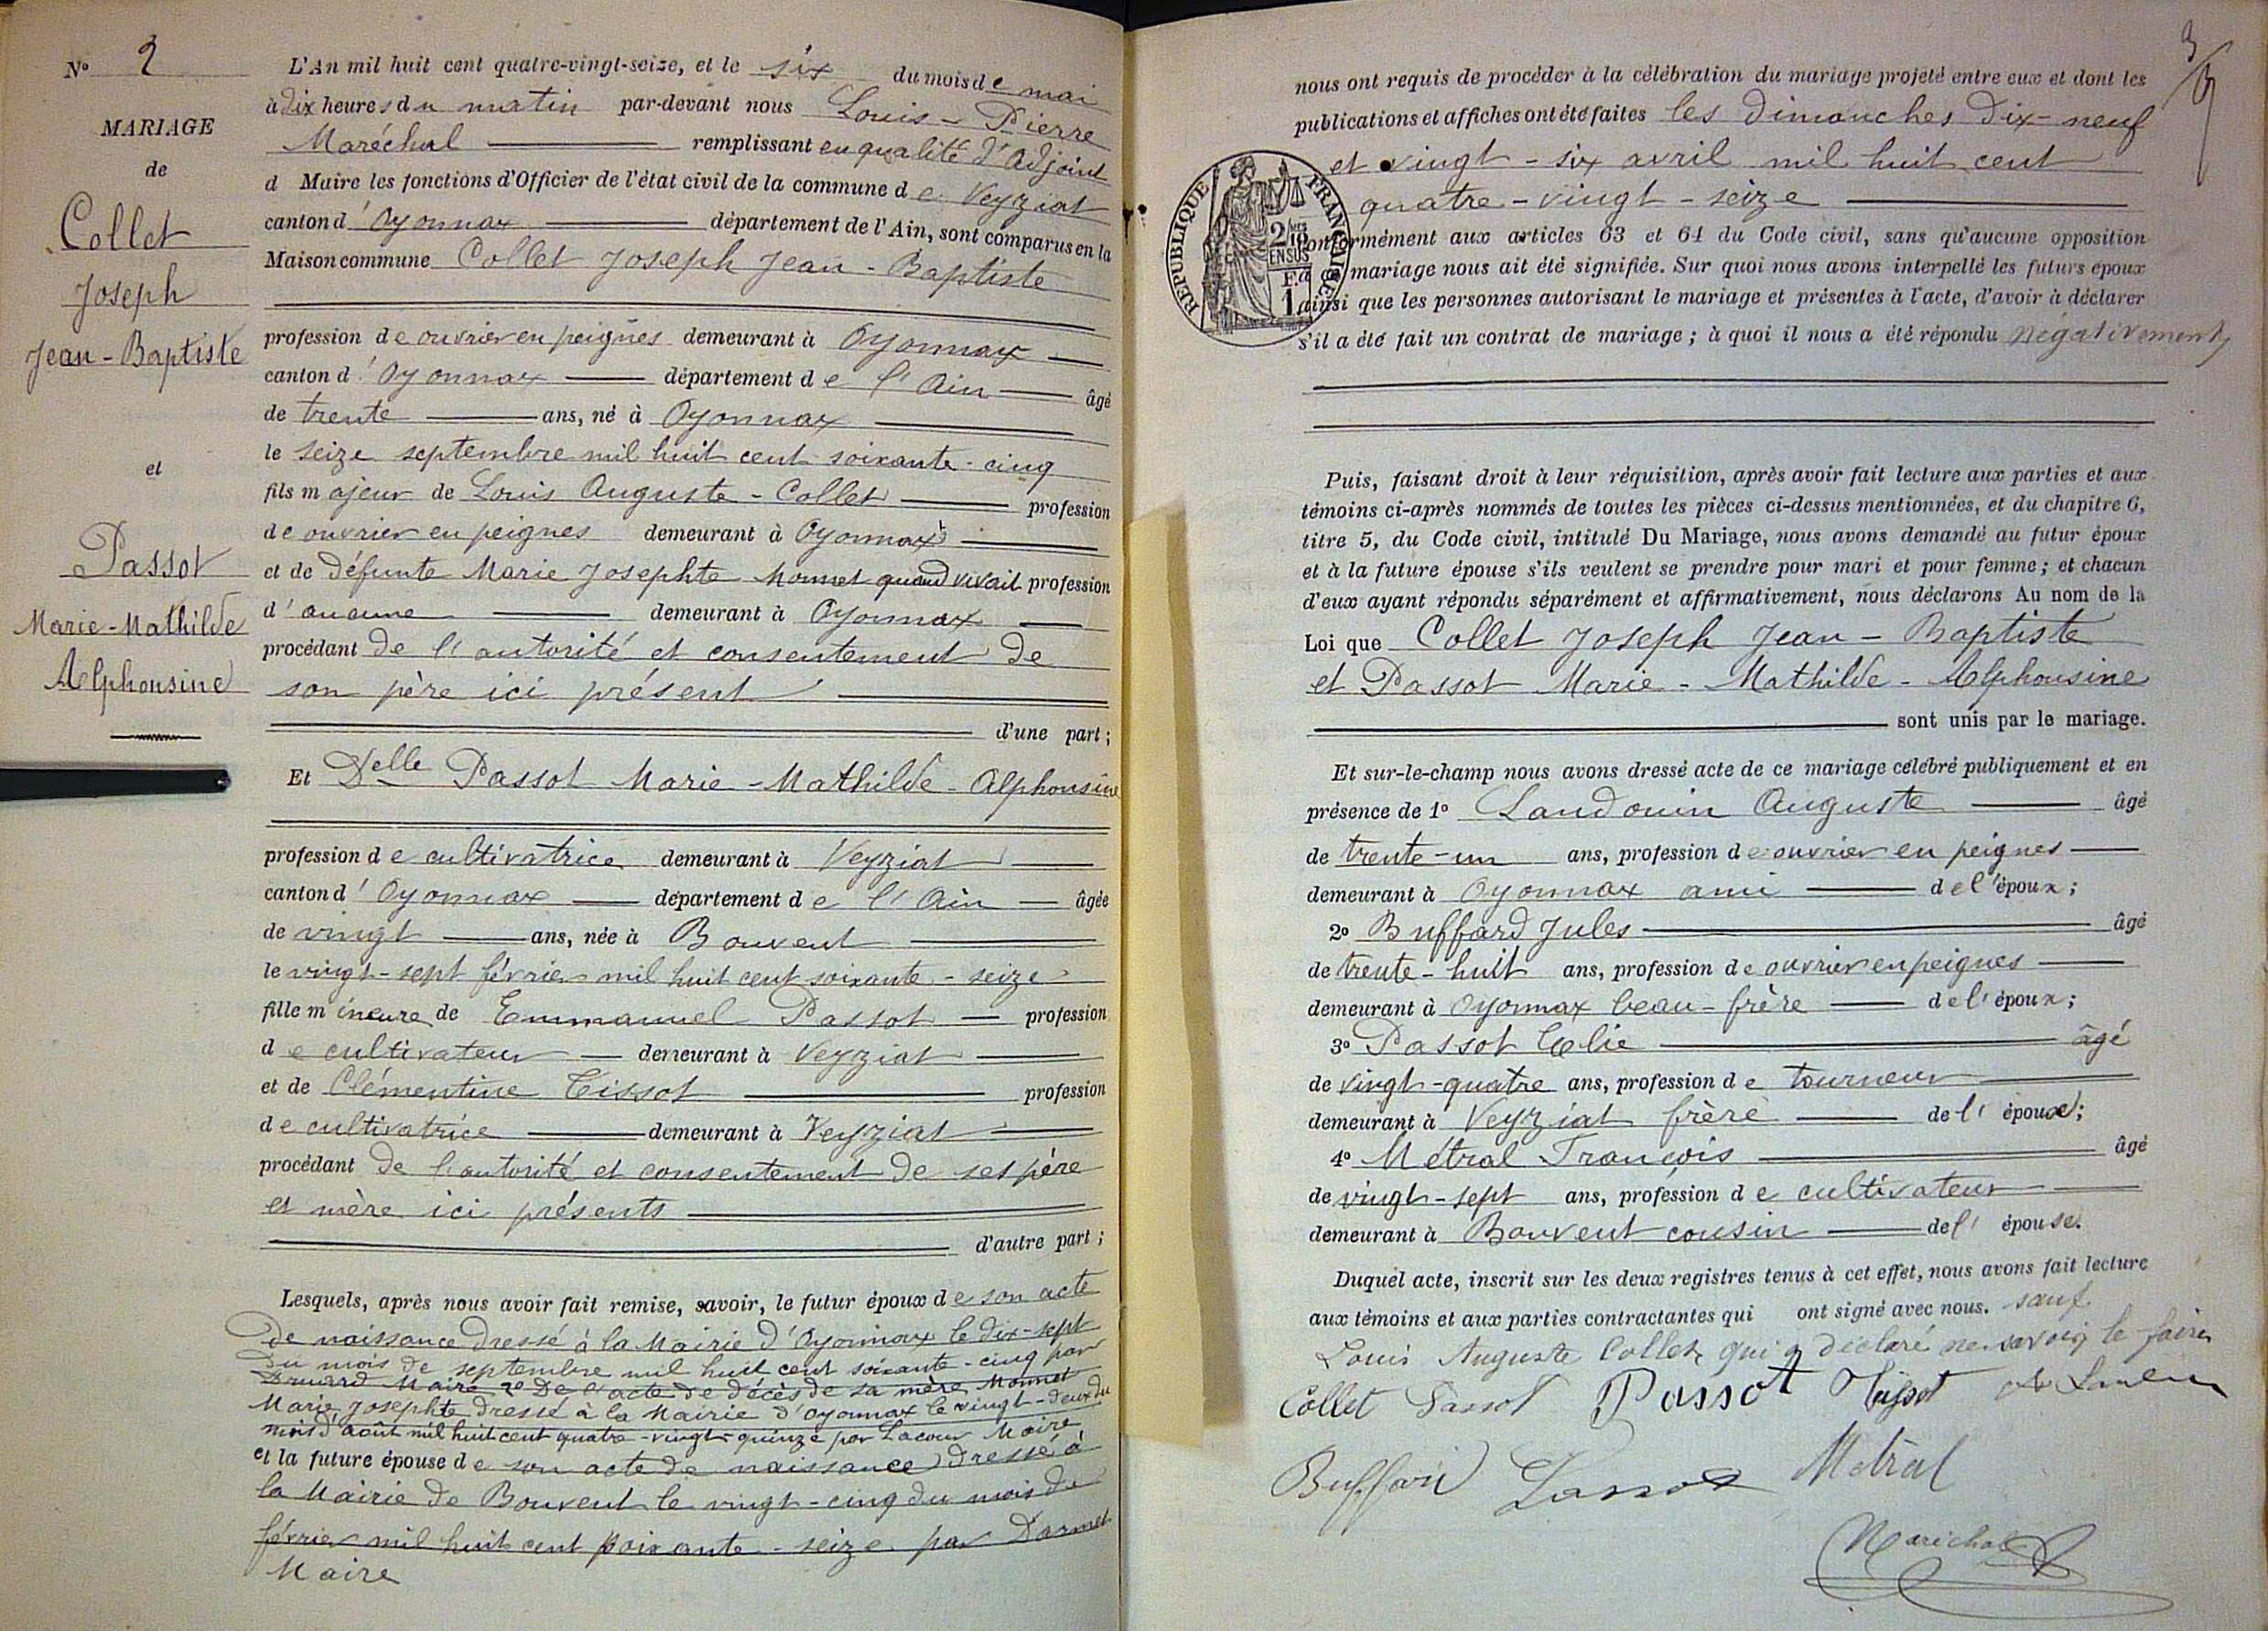 N° 2
MARIAGE
de
Collet
Joseph
Jean-Baptiste
et
Passot
Marie-Mathilde
Alphonsine
L'An mil huit cent quatre-vingt-seize, et le six du mois de mai
à dix heures du matin par-devant nous Louis-Pierre
Maréchal remplissant en qualité d'adjoint
d Maire les fonctions d'Officier de l'état civil de la commune de Veyziat
canton d'Oyonnax département de l'Ain, sont comparus en la
Maison commune Collet Joseph Jean-Baptiste
profession de ouvrier en peignes demeurant à Oyonnax
canton d'Oyonnax département de l'Ain âgé
de trente ans, né à Oyonnax
le seize septembre mil huit cent soixante-cinq
fils majeur de Louis Auguste-Collet profession
de ouvrier en peignes demeurant à Oyonnax
et de défunte Marie Josephte Monnet quand vivait profession
d'aucune demeurant à Oyonnax
procédant de l'autorité et consentement de
son père ici présent
d'une part;
Et Delle Passot Marie-Mathilde-Alphonsine
profession de cultivatrice demeurant à Veyziat
canton d'Oyonnax département de l'Ain âgée
de vingt ans, née à Bouvent
le vingt-sept février mil huit cent soixante-seize
fille mineure de Emmanuel Passot profession
de cultivateur demeurant à Veyziat
et de Clémentine Tissot profession
de cultivatrice demeurant à Veyziat
procédant de l'autorité et consentement de ses père
et mère ici présents
d'autre part;
Lesquels, après nous avoir fait remise, savoir, le futur époux de son acte
de naissance dressé à la Mairie d'Oyonnax le dix-sept
du mois de septembre mil huit cent soixante-cinq par
Maire 2° de l'acte de décès de sa mère Monnet
Marie Josephte dressé à la Mairie d'Oyonnax le vingt-deux du
mois d'août mil huit cent quatre-vingt-quinze par Lacour Maire
et la future épouse de son acte de naissance dressé à
la Mairie de Bouvent le vingt-cinq du mois de
février mil huit cent soixante-seize par Darmet
Maire
3
nous ont requis de procéder à la célébration du mariage projeté entre eux et dont les
publications et affiches ont été faites les dimanches dix-neuf
et vingt-six avril mil huit cent
quatre-vingt-seize
RÉPUBLIQUE FRANÇAISE
2/10 EN SUS
conformément aux articles 63 et 64 du Code civil, sans qu'aucune opposition
au mariage nous ait été signifiée. Sur quoi nous avons interpellé les futurs époux
ainsi que les personnes autorisant le mariage et présentes à l'acte, d'avoir à déclarer
s'il a été fait un contrat de mariage; à quoi il nous a été répondu négativement
Puis, faisant droit à leur réquisition, après avoir fait lecture aux parties et aux
témoins ci-après nommés de toutes les pièces ci-dessus mentionnées, et du chapitre 6,
titre 5, du Code civil, intitulé Du Mariage, nous avons demandé au futur époux
et à la future épouse s'ils veulent se prendre pour mari et pour femme; et chacun
d'eux ayant répondu séparément et affirmativement, nous déclarons Au nom de la
Loi que Collet Joseph Jean-Baptiste
et Passot Marie-Mathilde-Alphonsine
sont unis par le mariage.
Et sur-le-champ nous avons dressé acte de ce mariage célébré publiquement et en
présence de 1° Landouin Auguste âgé
de trente-un ans, profession de ouvrier en peignes
demeurant à Oyonnax ami de l'époux;
2° Buffard Jules âgé
de trente-huit ans, profession de ouvrier en peignes
demeurant à Oyonnax beau-frère de l'époux;
3° Passot Elie âgé
de vingt-quatre ans, profession de tourneur
demeurant à Veyziat frère de l'épouse;
4° Métral François âgé
de vingt-sept ans, profession de cultivateur
demeurant à Bouvent cousin de l'épouse.
Duquel acte, inscrit sur les deux registres tenus à cet effet, nous avons fait lecture
aux témoins et aux parties contractantes qui ont signé avec nous. sauf
Louis Auguste Collet qui a déclaré ne savoir le faire
Collet Passot Passot Tissot
Buffard Passot Métral
Maréchal